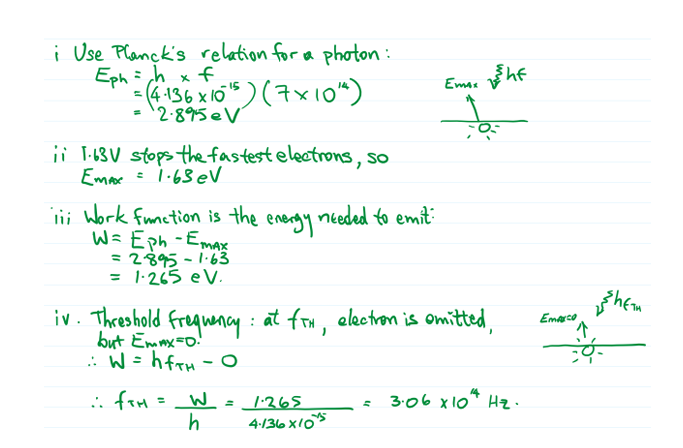 i Use Planck's relation for a photon:
Eph = h x f
= (4.136 x 10^-15) (7 x 10^14)
= 2.895 eV
Emax hf
ii 1.63V stops the fastest electrons, so
Emax = 1.63 eV
iii Work function is the energy needed to emit:
W = Eph - EMAX
= 2.895 - 1.63
= 1.265 eV.
iv. Threshold frequency: at fTH, electron is omitted,
but EMAX=0.
∴ W = hfTH - 0
Emax=0 hfTH
∴ fTH = W/h = 1.265/4.136 x 10^-15 = 3.06 x 10^14 Hz.